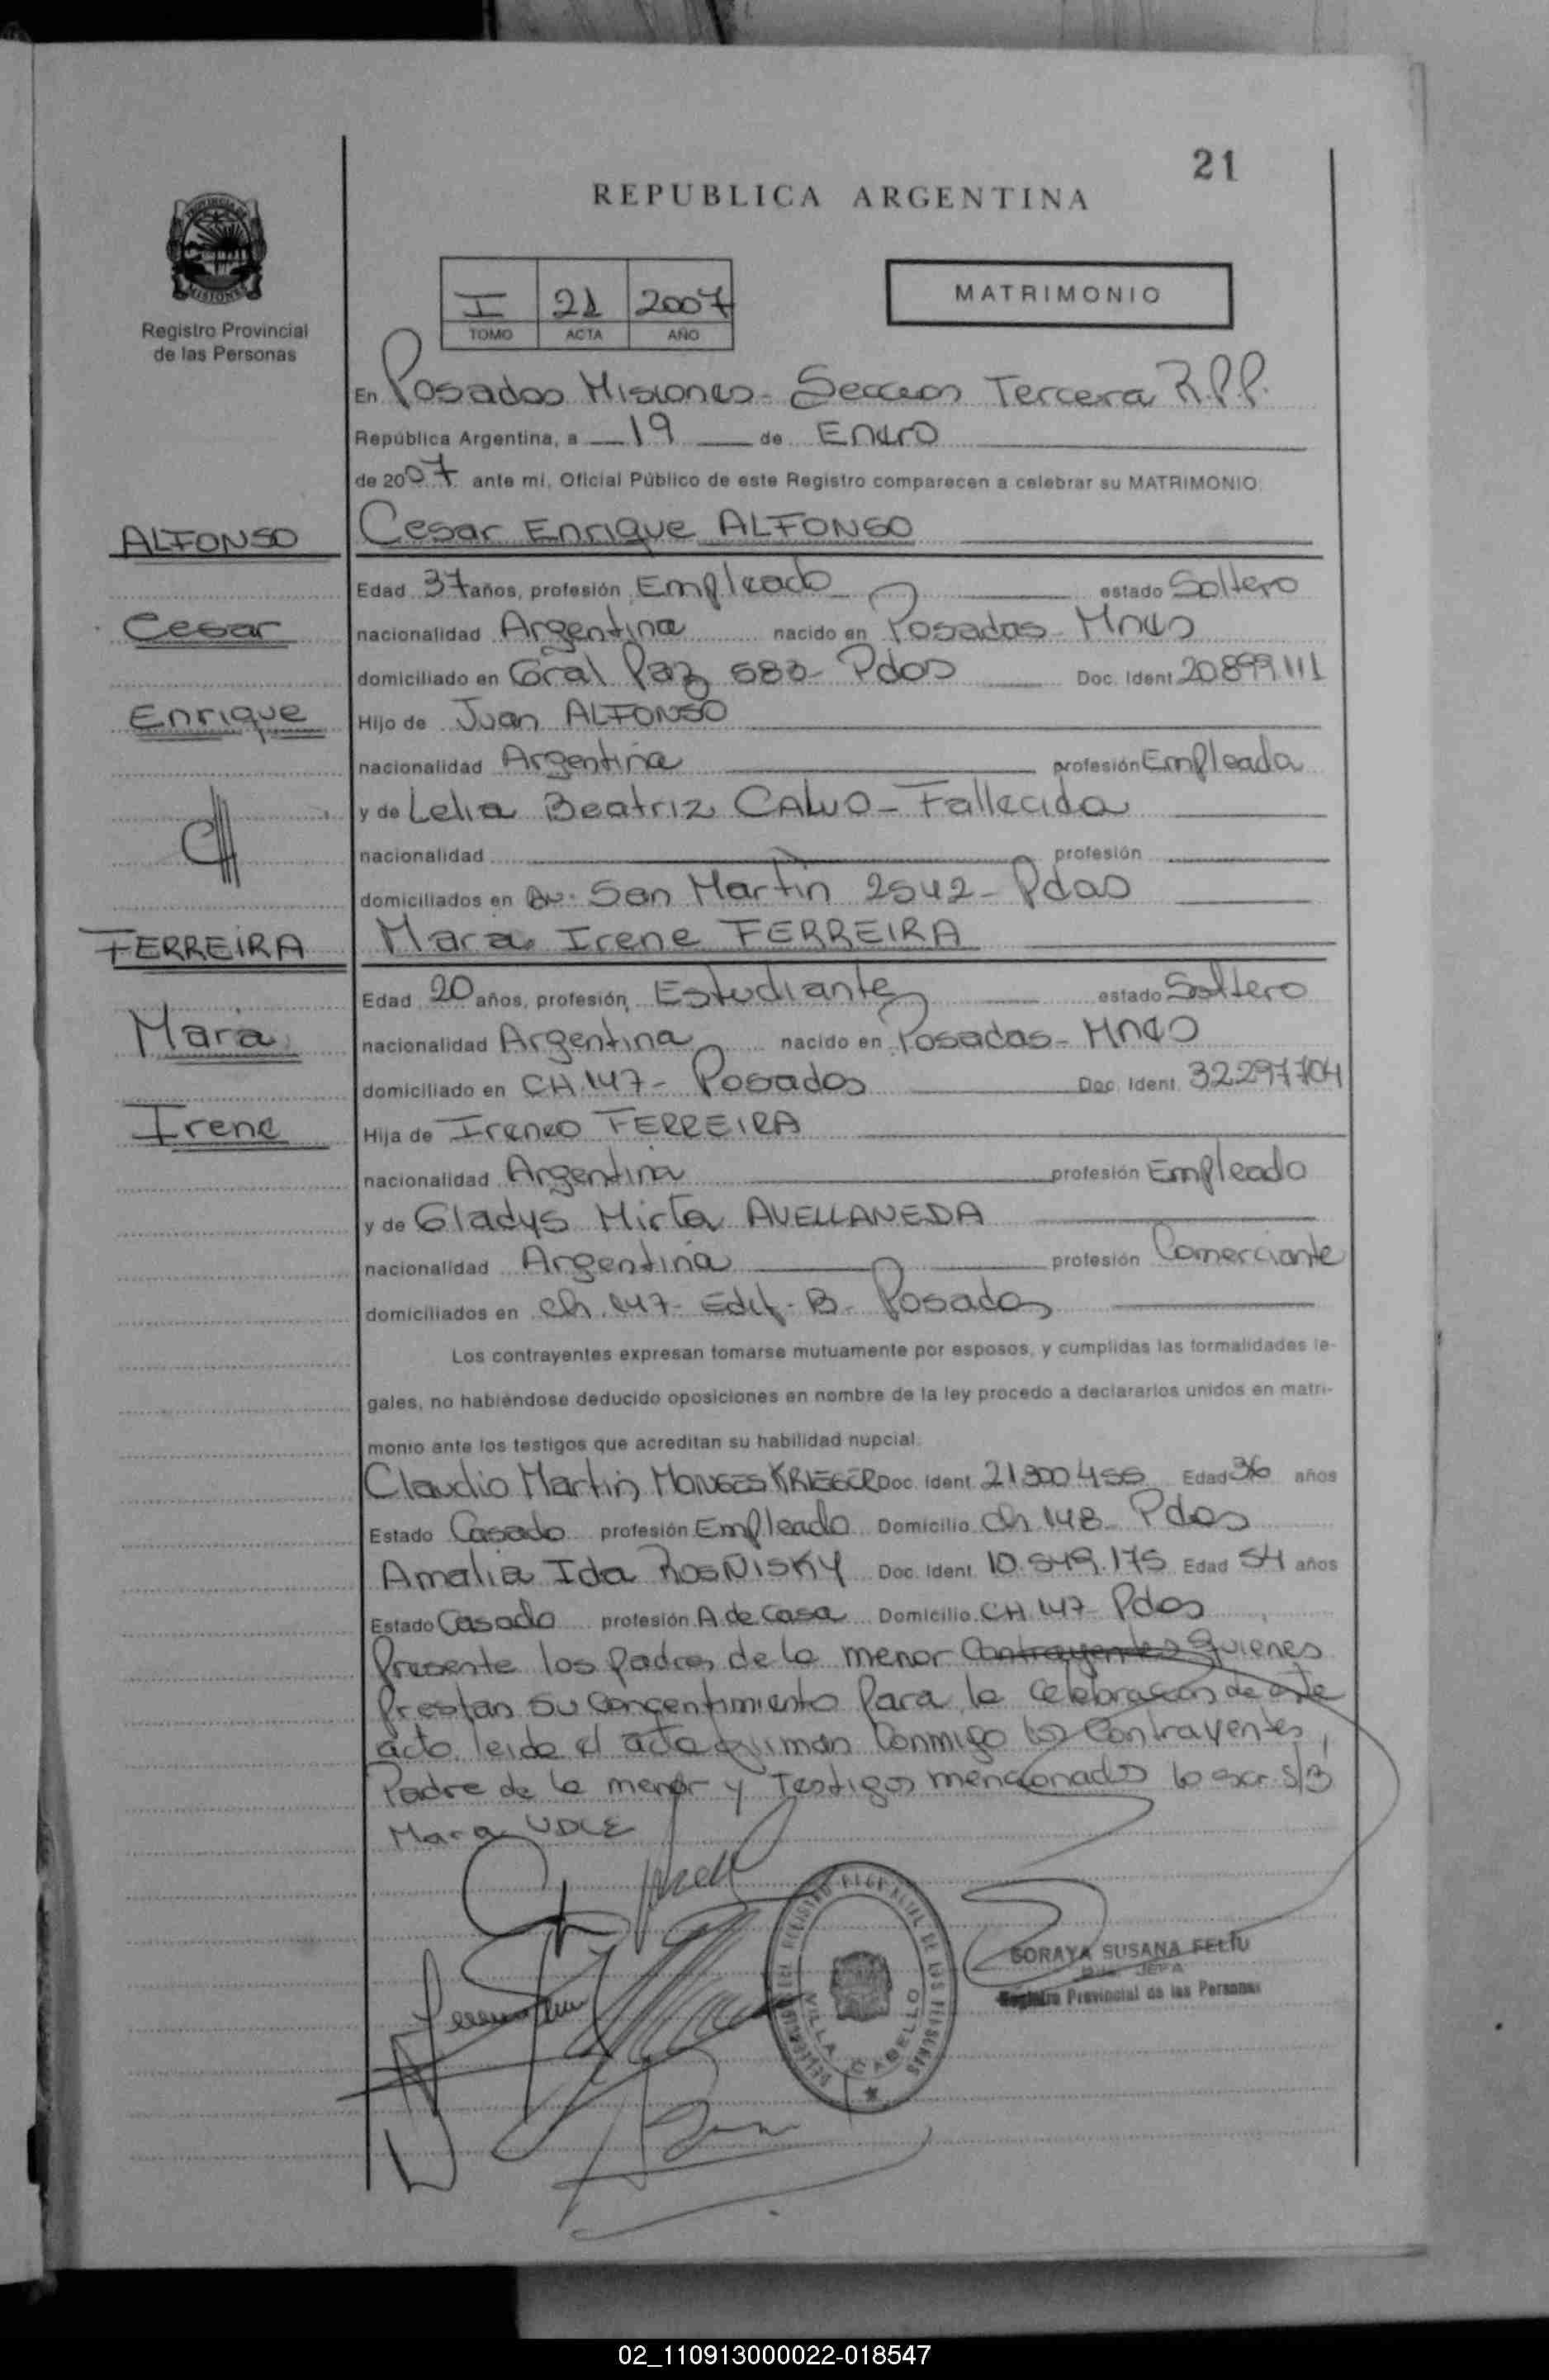 21
REPUBLICA ARGENTINA
PROVINCIA DE
MISIONES
Registro Provincial
de las Personas
I 21 2007
TOMO ACTA AÑO
MATRIMONIO
En Posadas Misiones - Seccion Tercera R.P.P.
República Argentina, a 19 de Enero
de 2007 ante mí, Oficial Público de este Registro comparecen a celebrar su MATRIMONIO:
ALFONSO
Cesar Enrique ALFONSO
Edad 37 años, profesión Empleado estado Soltero
Cesar
nacionalidad Argentina nacido en Posadas - Mnes
domiciliado en Gral Paz 583 - Pdas Doc. Ident 20.899.111
Enrique
Hijo de Juan ALFONSO
nacionalidad Argentina profesión Empleada
y de Lelia Beatriz CALVO - Fallecida
nacionalidad profesión
domiciliados en Av. San Martin 2542 - Pdas
FERREIRA
Mara Irene FERREIRA
Edad 20 años, profesión, Estudiante estado Soltero
Mara
nacionalidad Argentina nacido en Posadas - Mnes
domiciliado en CH. 147 - Posadas Doc. Ident. 32297704
Irene
Hija de Ireneo FERREIRA
nacionalidad Argentina profesión Empleado
y de Gladys Mirta AVELLANEDA
nacionalidad Argentina profesión Comerciante
domiciliados en ch. 147 - Edif - B - Posadas
Los contrayentes expresan tomarse mutuamente por esposos, y cumplidas las formalidades le-
gales, no habiéndose deducido oposiciones en nombre de la ley procedo a declararlos unidos en matri-
monio ante los testigos que acreditan su habilidad nupcial:
Claudio Martin MONGES KRIEGER Doc. Ident 21300456 Edad 36 años
Estado Casado profesión Empleado Domicilio Ch 148 - Pdas
Amalia Ida ROSÑISKY Doc. Ident. 10.549.175 Edad 54 años
Estado Casado profesión A de Casa Domicilio CH 147 - Pdas
Presente los padres de la menor Contrayentes quienes
Prestan su concentimiento Para la celebracion de este
acto. leida el acta firman Conmigo los Contrayentes,
Padre de la menor y Testigos mencionados lo escr. S/B
Mara VALE
REGISTRO PROVINCIAL DE LAS PERSONAS
VILLA CABELLO
SORAYA SUSANA FELIU
JEFA
Registro Provincial de las Personas
02_110913000022-018547